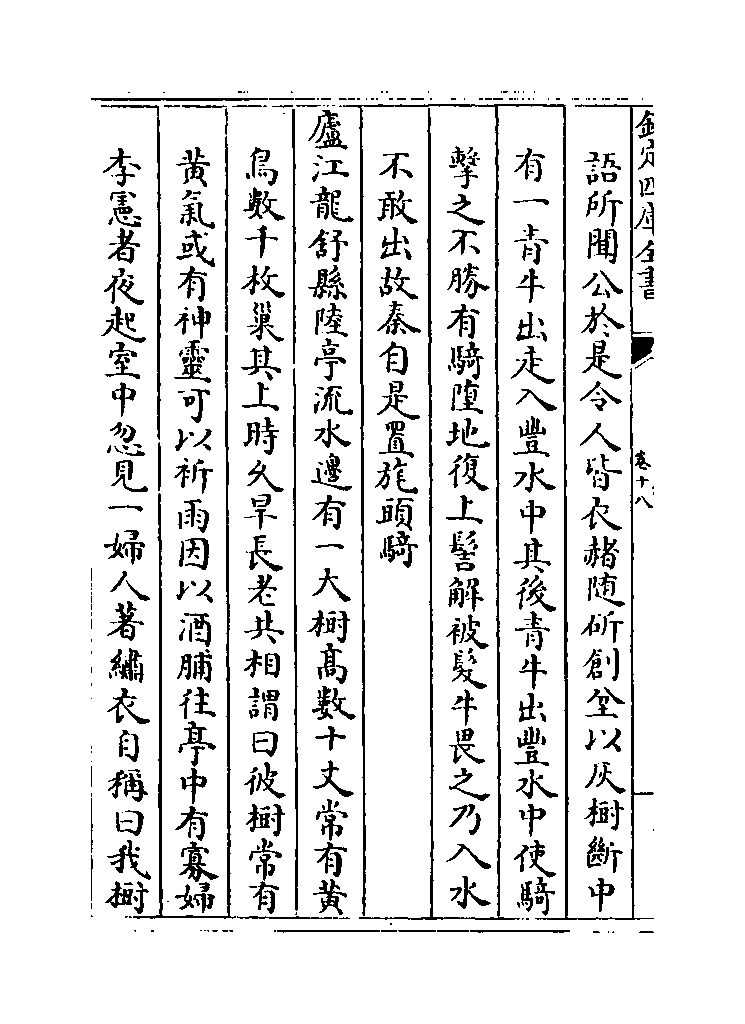 欽定四庫全書
卷十八
語所聞公於是令人皆衣赭随斫創坌以灰樹斷中
有一青牛出走入豐水中其後青牛出豐水中使騎
擊之不勝有騎墮地復上髻解被髮牛畏之乃入水
不敢出故秦自是置旄頭騎
廬江龍舒縣陸亭流水邊有一大樹髙數十丈常有黄
鳥數千枚巢其上時乆旱長老共相謂曰彼樹常有
黄氣或有神靈可以祈雨因以酒脯往亭中有寡婦
李憲者夜起室中忽見一婦人著繡衣自稱曰我樹